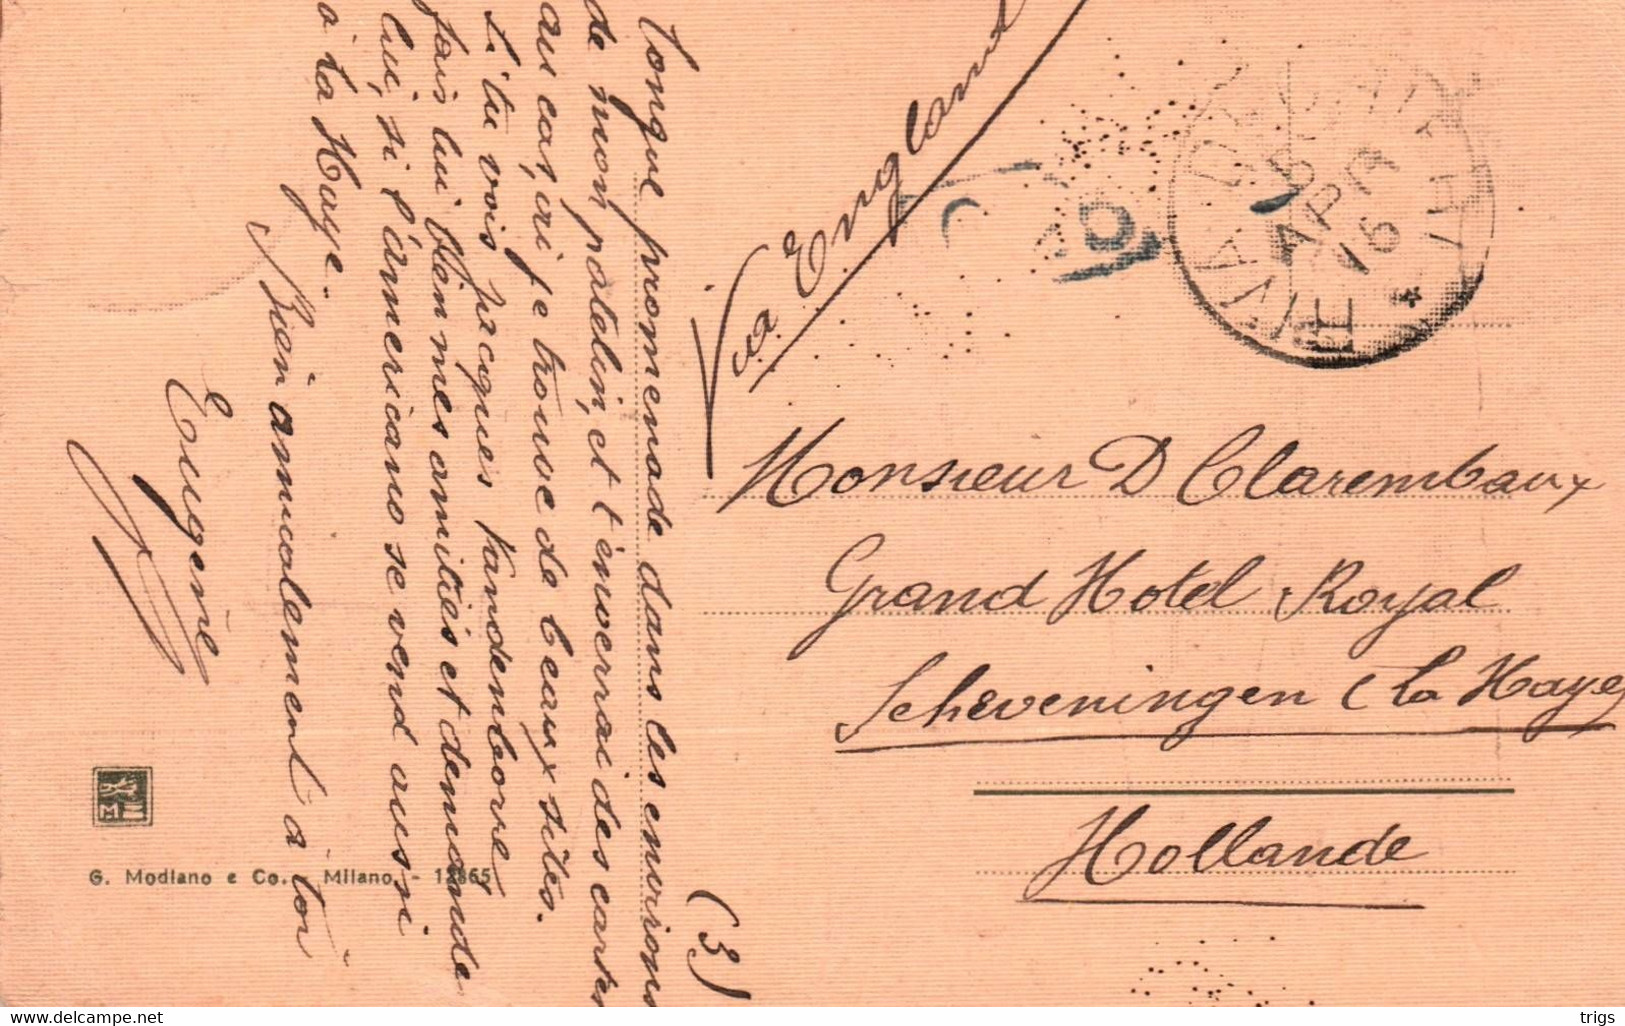 (3)
longue promenade dans les environs
de mon patelin, et t'enverrai des cartes
au cas, où je trouve de beaux sites.
Si tu vois Jacques Vandenborre
fais lui bien mes amitiés et demande
lui, si l'américano se vend aussi
à la Haye.
Bien amicalement à toi
Eugène
Via England
RIVA
APR
16
Monsieur D Clarembaux
Grand Hotel Royal
Scheveningen (La Haye)
Hollande
M
G. Modiano e Co. - Milano - 12865
www.delcampe.net
trigs